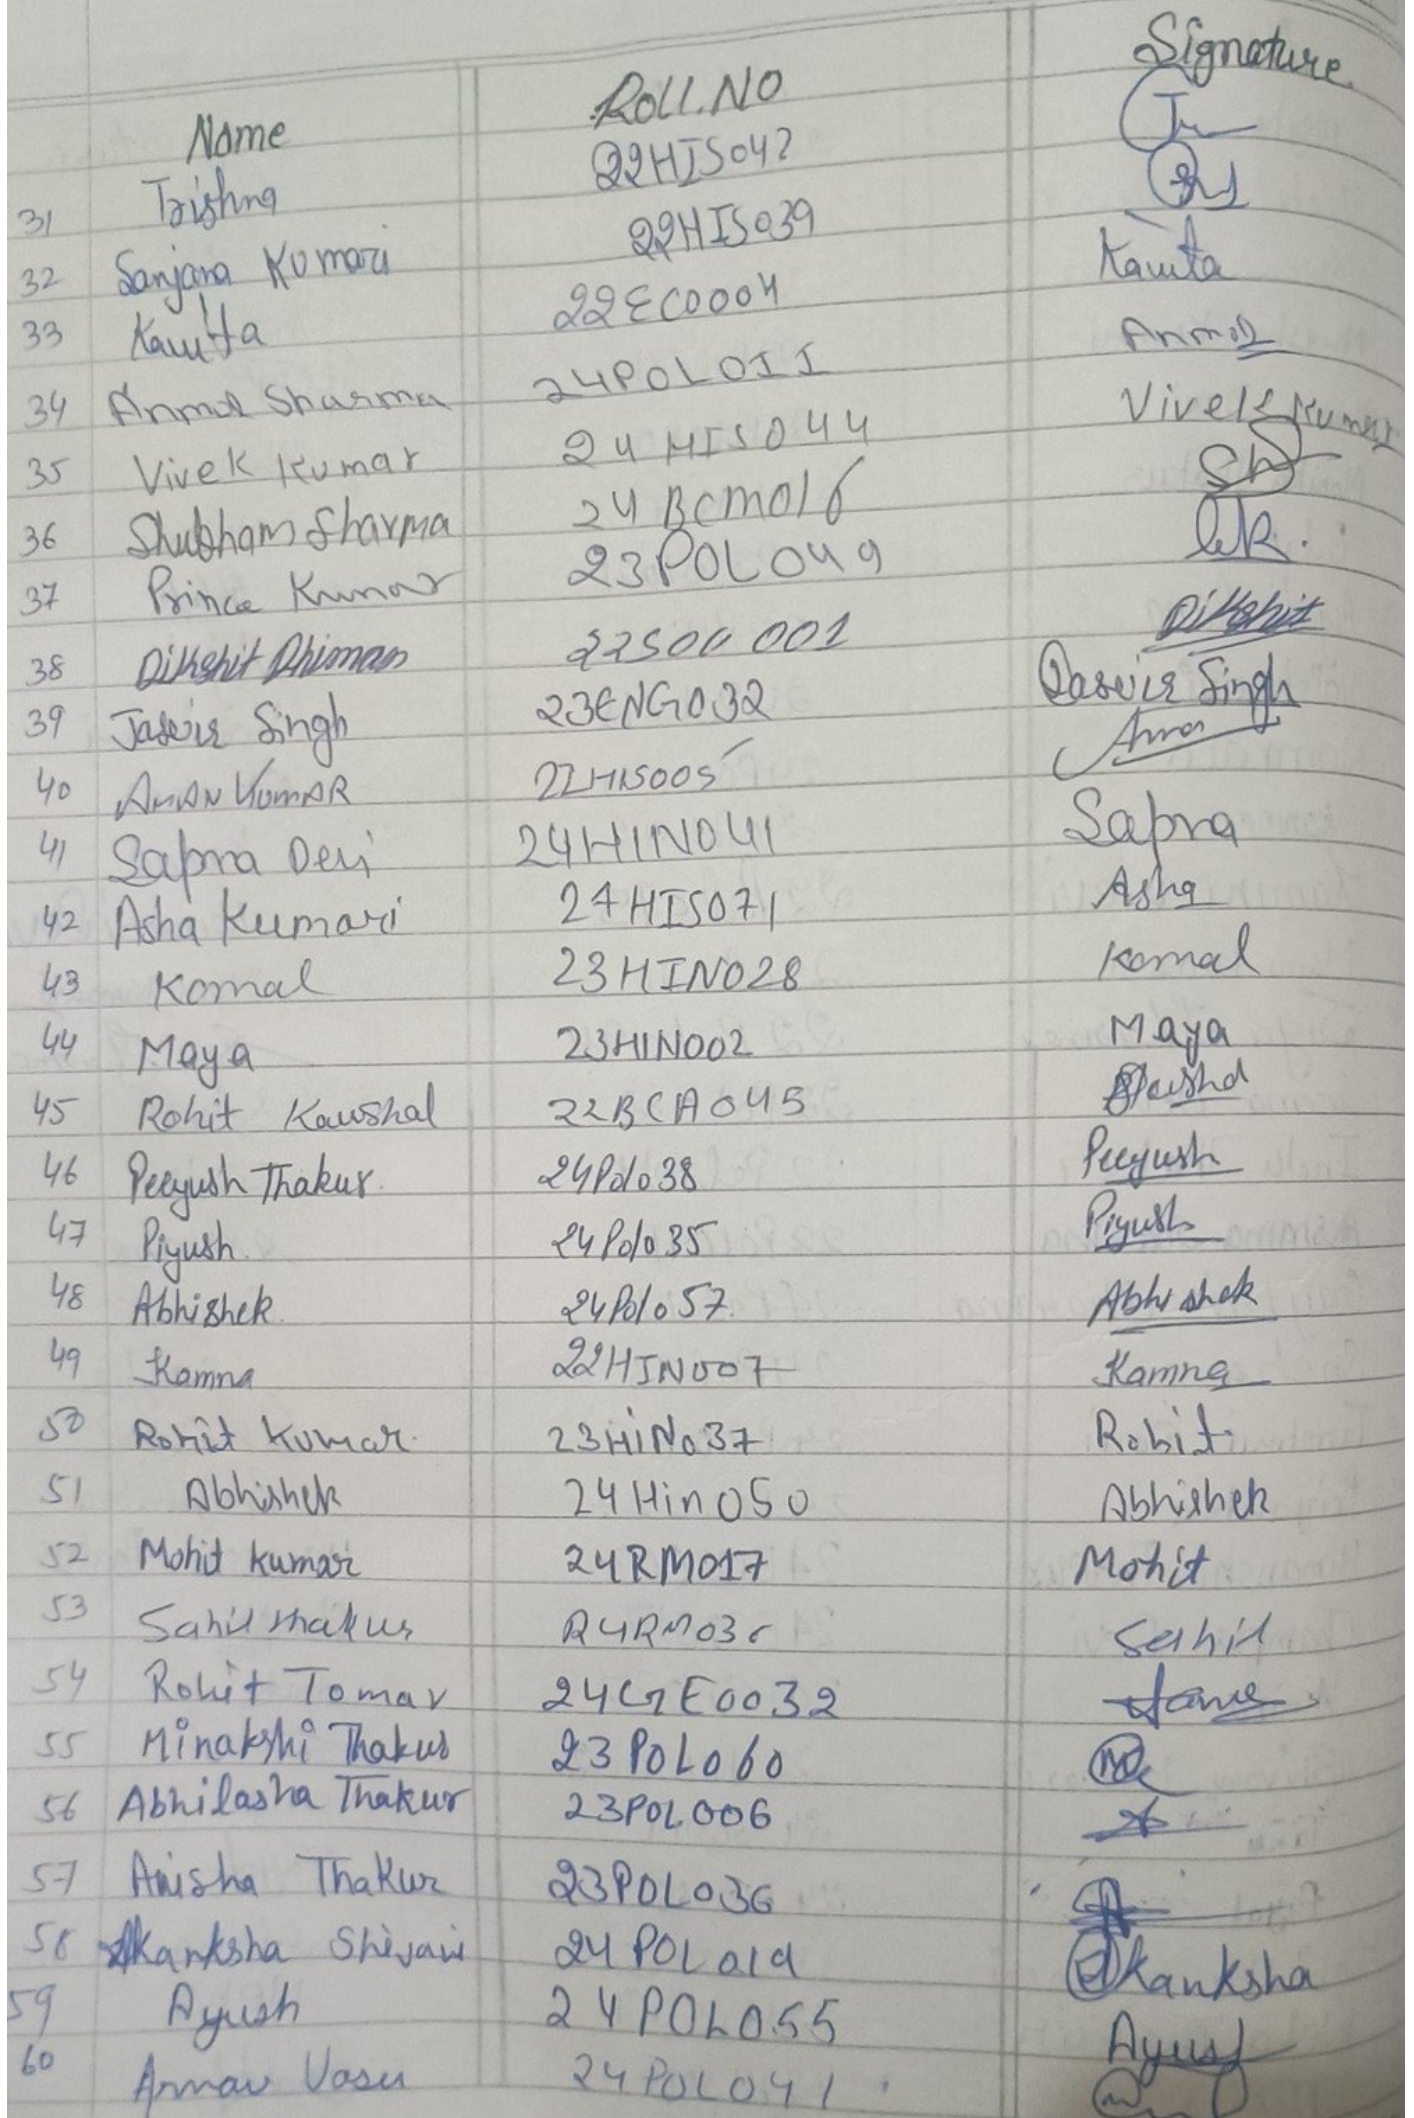 Name Roll.NO Signature
31 Trishna 22HIS042
32 Sanjana Kumari 22HIS039
33 Kavita 22ECO004 Kavita
34 Anmol Sharma 24POL011 Anmol
35 Vivek Kumar 24HIS044 Vivek Kumar
36 Shubham Sharma 24BCM016 Sh
37 Prince Kumar 23POL049
38 Dikshit Dhiman 22SOC001 Dikshit
39 Jasvir Singh 23ENG032 Jasvir Singh
40 AMAN KUMAR 22HIS005 Aman
41 Sapna Devi 24HIN041 Sapna
42 Asha Kumari 24HIS071 Asha
43 Komal 23HIN028 Komal
44 Maya 23HIN002 Maya
45 Rohit Kaushal 22BCA045
46 Peeyush Thakur 24Pol038 Peeyush
47 Piyush 24Pol035 Piyush
48 Abhishek 24Pol057 Abhishek
49 Kamna 22HIN007 Kamna
50 Rohit Kumar 23HiNo37 Rohit
51 Abhishek 24Hin050 Abhishek
52 Mohit kumar 24RM017 Mohit
53 Sahil thakur Sahil
54 Rohit Tomar 24GEO032
55 Minakshi Thakur 23POL060
56 Abhilasha Thakur 23POL006
57 Anisha Thakur 23POL036
58 Akanksha 24POL019 Akanksha
59 Ayush 24POL055 Ayush
60 Arnav Vasu 24POL041